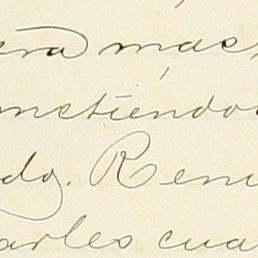 era mas
metiéndo
do. Rem
arles cua